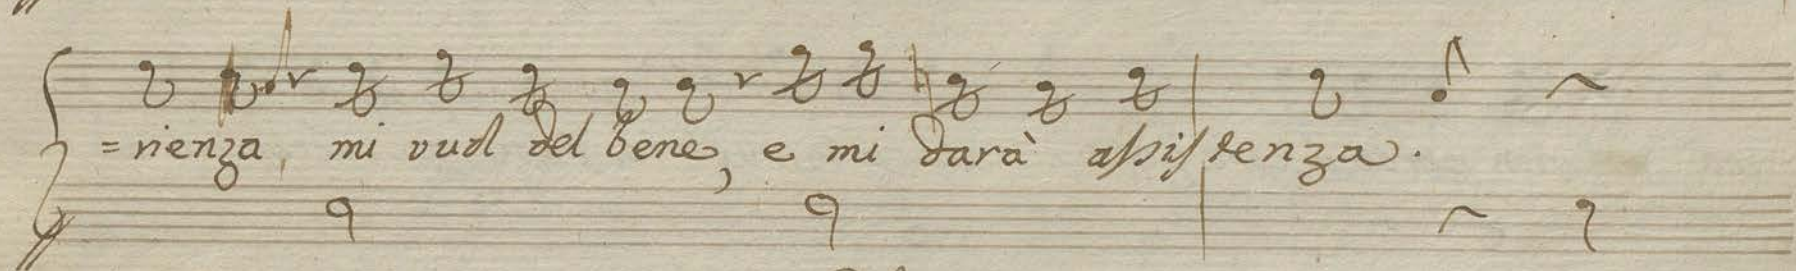 =rienza, mi vuol del bene, e mi darà assistenza.